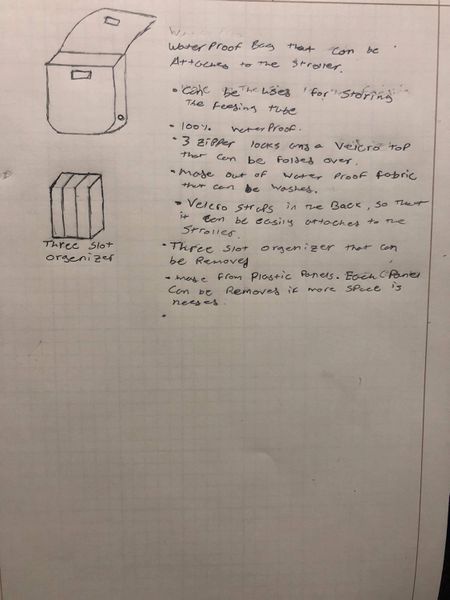 WaterProof Bag that can be
Attaches to the Stroller.
• Can be used for Storing
The Feesing tube
• 100% waterProof.
• 3 Zipper locks and a Velcro top
that can be folded over.
• Made out of water Proof fabric
that can be washes.
• Velcro straps in the Back, so that
it can be easily attaches to the
Stroller.
• Three slot orgenizer that can
be Removed
• made from Plastic Panels. Each Panel
Can be Removes if more space is
needes.
Three slot
orgenizer